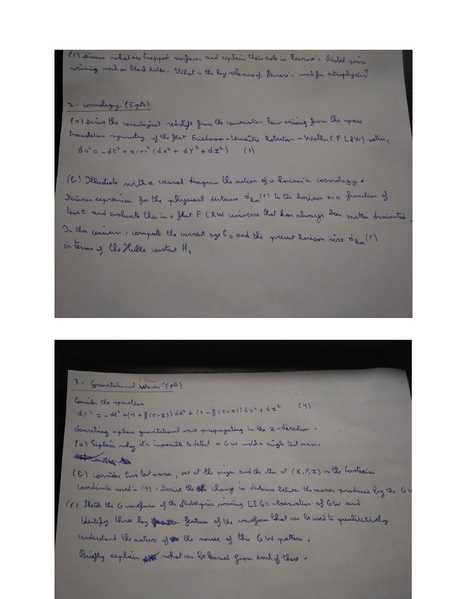 (c) Discuss what are trapped surfaces and explain their role in Penrose's Nobel prize
winning work on black holes. What is the key relevance of Penrose's work for astrophysics?
2 - Cosmology (5 pts)
(a) Derive the cosmological redshift from the conservation law arising from the space
translation symmetry of the flat Friedmann - Lemaître Robertson - Walker (FLRW) metric,
ds² = - dt² + a(t)² (dx² + dy² + dz²) (3)
(b) Illustrate with a causal diagram the notion of a horizon in cosmology.
Derive an expression for the physical distance d_hor(t) to the horizon as a function of
time t and evaluate this in a flat FLRW universe that has always been matter dominated.
In this universe, compute the current age t₀ and the present horizon size d_hor(t)
in terms of the Hubble constant H₀
3 - Gravitational Waves (5 pts)
Consider the spacetime
ds² = - dt² + (1 + f(t-z)) dx² + (1 - f(t-z)) dy² + dz² (4)
describing a plane gravitational wave propagating in the z-direction.
(a) Explain why it's impossible to detect a GW with a single test mass.
(b) Consider two test masses, one at the origin and the other at (X,Y,Z) in the
coordinates used in (4). Derive the change in distance between the masses produced by the GW
(c) Sketch the GW waveform of the Nobel prize winning LIGO observation of GW and
identify three key features of the waveform that can be used to quantitatively
understand the nature of the source of this GW pattern.
Briefly explain what can be learned from each of these.